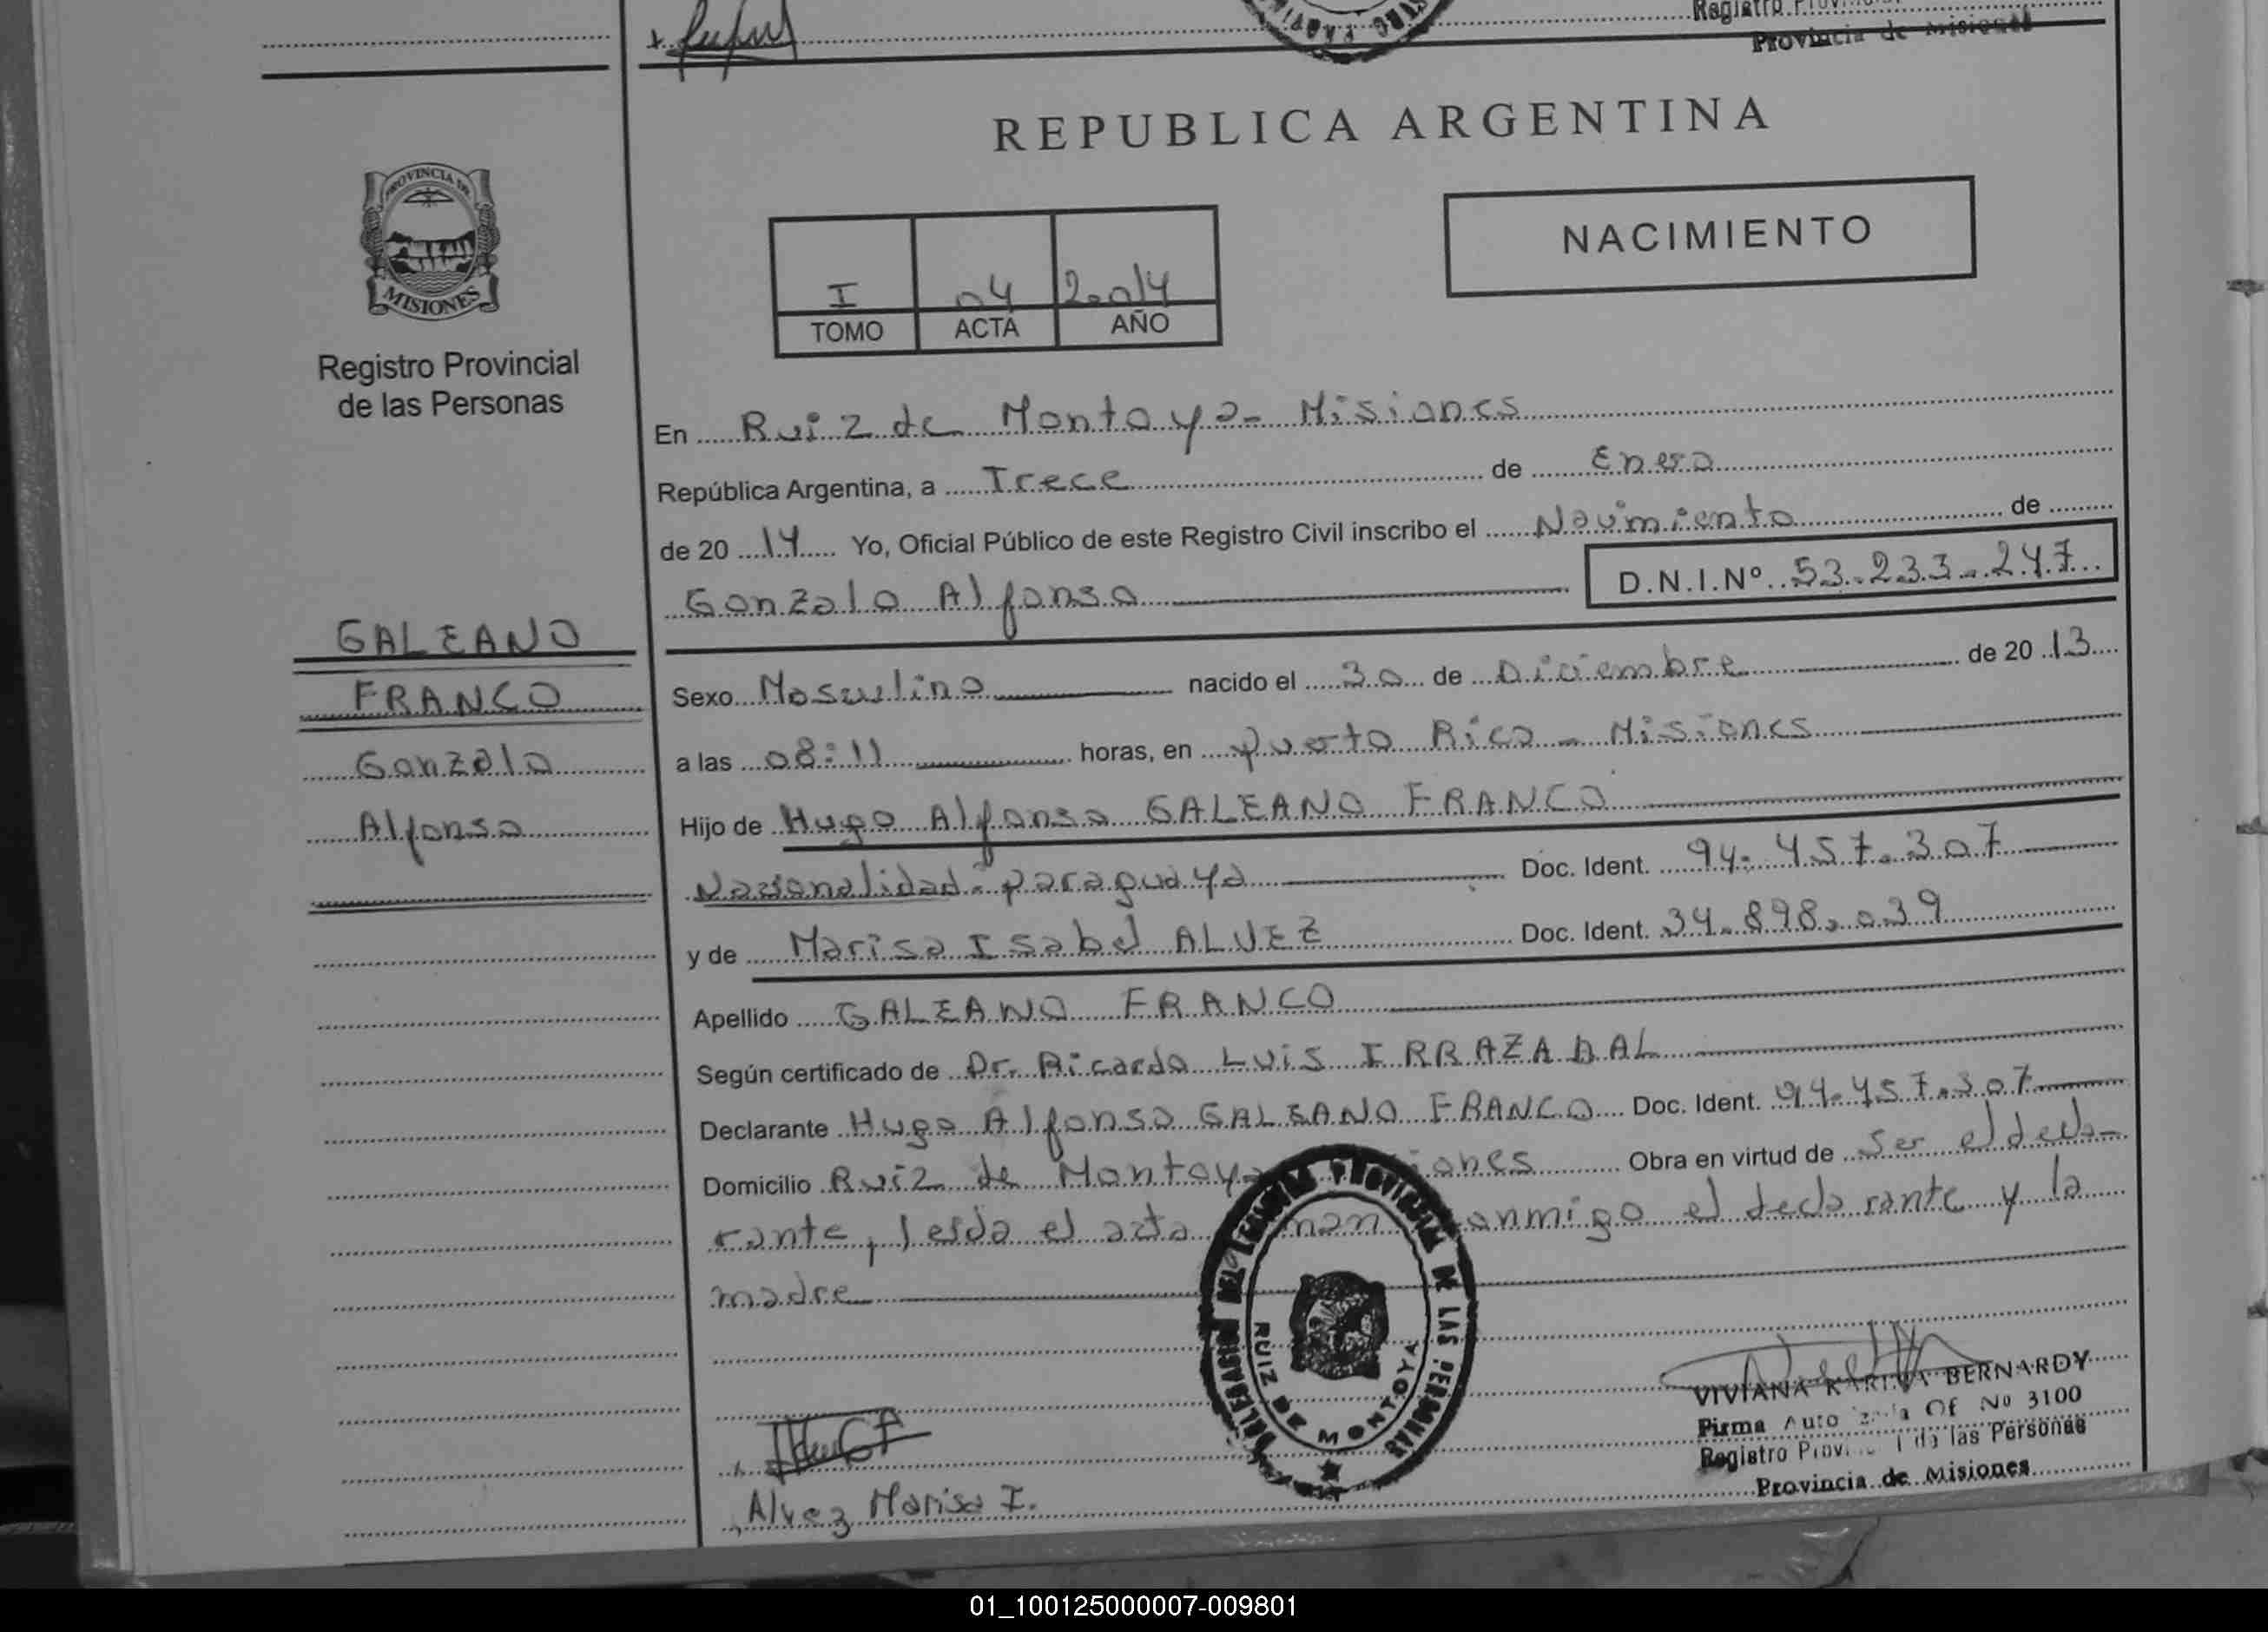 Registro Provincial
Provincia de Misiones
PROVINCIA DE
MISIONES
Registro Provincial
de las Personas
GALEANO
FRANCO
Gonzalo
Alfonso
REPUBLICA ARGENTINA
NACIMIENTO
I 04 2014
TOMO ACTA AÑO
En Ruiz de Montoya - Misiones
República Argentina, a Trece de Enero
de 20 14 Yo, Oficial Público de este Registro Civil inscribo el Nacimiento de
Gonzalo Alfonso D.N.I.Nº 53.233.247
Sexo Masculino nacido el 30 de Diciembre de 20 13
a las 08:11 horas, en Puerto Rico - Misiones
Hijo de Hugo Alfonso GALEANO FRANCO
Nacionalidad - paraguaya Doc. Ident. 94.457.307
y de Marisa Isabel ALVEZ Doc. Ident. 34.898.039
Apellido GALEANO FRANCO
Según certificado de Dr. Ricardo Luis IRRAZABAL
Declarante Hugo Alfonso GALEANO FRANCO Doc. Ident. 94.457.307
Domicilio Ruiz de Montoya Obra en virtud de Ser el decla-
rante, leida el acta conmigo el declarante y la
madre
DEL REGISTRO PROVINCIAL DE LAS PERSONAS
RUIZ DE MONTOYA
VIVIANA KARINA BERNARDY
Firma Autorizada Of Nº 3100
Registro Provincial de las Personas
Provincia de Misiones
Alvez Marisa I.
01_100125000007-009801